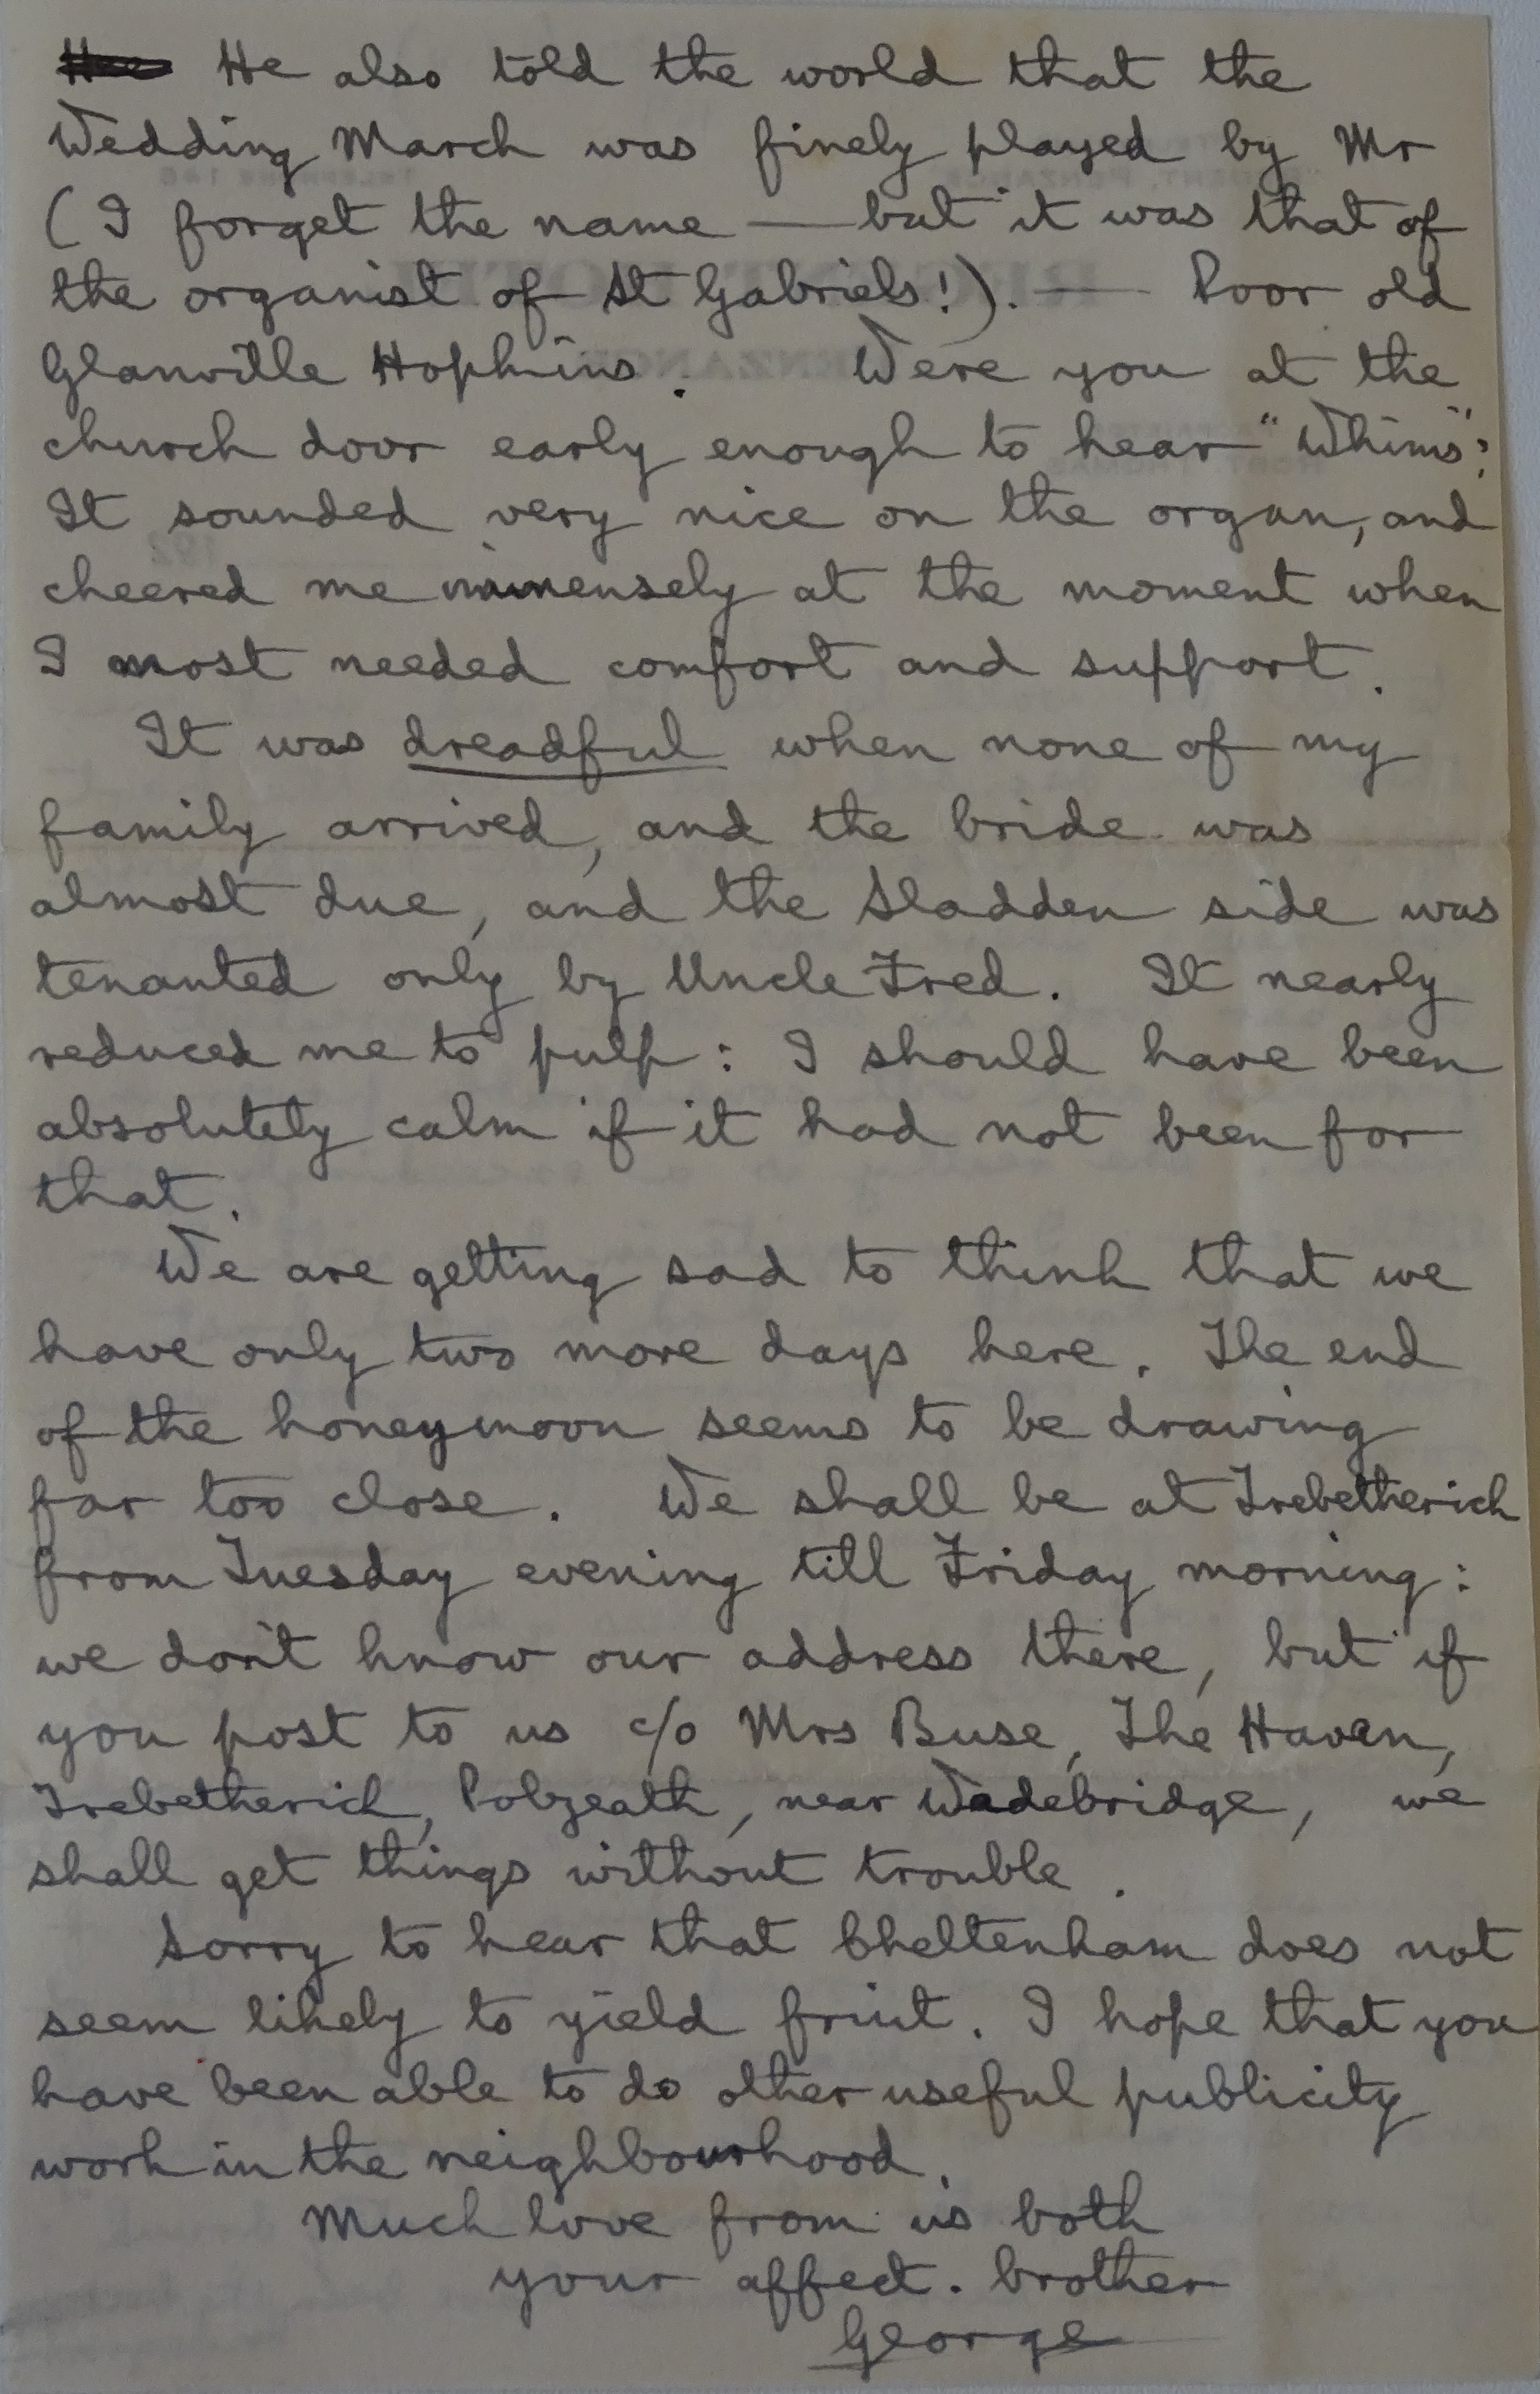 He also told the world that the
Wedding March was finely played by Mr
(I forget the name — but it was that of
the organist of St Gabriels!). — Poor old
Glanville Hopkins. Were you at the
church door early enough to hear "Whims"?
It sounded very nice on the organ, and
cheered me immensely at the moment when
I most needed comfort and support.
It was dreadful when none of my
family arrived, and the bride was
almost due, and the Sladden side was
tenanted only by Uncle Fred. It nearly
reduced me to pulp: I should have been
absolutely calm if it had not been for
that.
We are getting sad to think that we
have only two more days here. The end
of the honeymoon seems to be drawing
far too close. We shall be at Trebetherich
from Tuesday evening till Friday morning:
we don't know our address there, but if
you post to us c/o Mrs Buse, The Haven,
Trebetherich, Polzeath, near Wadebridge, we
shall get things without trouble.
Sorry to hear that Cheltenham does not
seem likely to yield fruit. I hope that you
have been able to do other useful publicity
work in the neighbourhood.
Much love from us both
your affect. brother
George